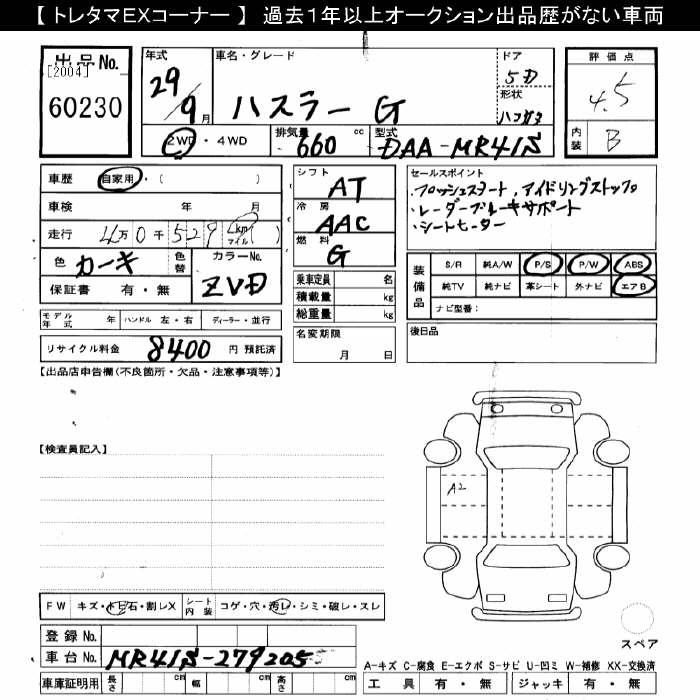 【 トレタマEXコーナー 】 過去１年以上オークション出品歴がない車両
出品No. 年式 車名・グレード ドア 評価点
[2004] 29/9月 ハスラー G 5D 4.5
60230 形状 ハコガタ
2WD・4WD 排気量 660 cc 型式 DAA-MR41S 内装 B
車歴 自家用・( ) シフト AT セールスポイント
車検 年 月 冷房 AAC ・プッシュスタート、アイドリングストップ
・レーダーブレーキサポート
走行 4万0千529 km マイル ( ) 燃料 G ・シートヒーター
色 カーキ 色替 カラーNo. ZVD 乗車定員 名
装備品 S/R 純A/W P/S P/W ABS
保証書 有・無 積載量 kg 純TV 純ナビ 革シート 外ナビ エアB
総重量 kg ナビ型番:
モデル年式 年 ハンドル 左・右 ディーラー・並行 名変期限 月 日 後日品
リサイクル料金 8400 円 預託済
【出品店申告欄(不良箇所・欠品・注意事項等)】
【検査員記入】
A2
FW キズ・トビ石・割レX シート内装 コゲ・穴・汚レ・シミ・破レ・スレ
登録 No.
スペア
車台 No. MR41S-279205 A-キズ C-腐食 E-エクボ S-サビ U-凹ミ W-補修 XX-交換済
車庫証明用 長さ cm 幅 cm 高さ cm 工具 有・無 ジャッキ 有・無